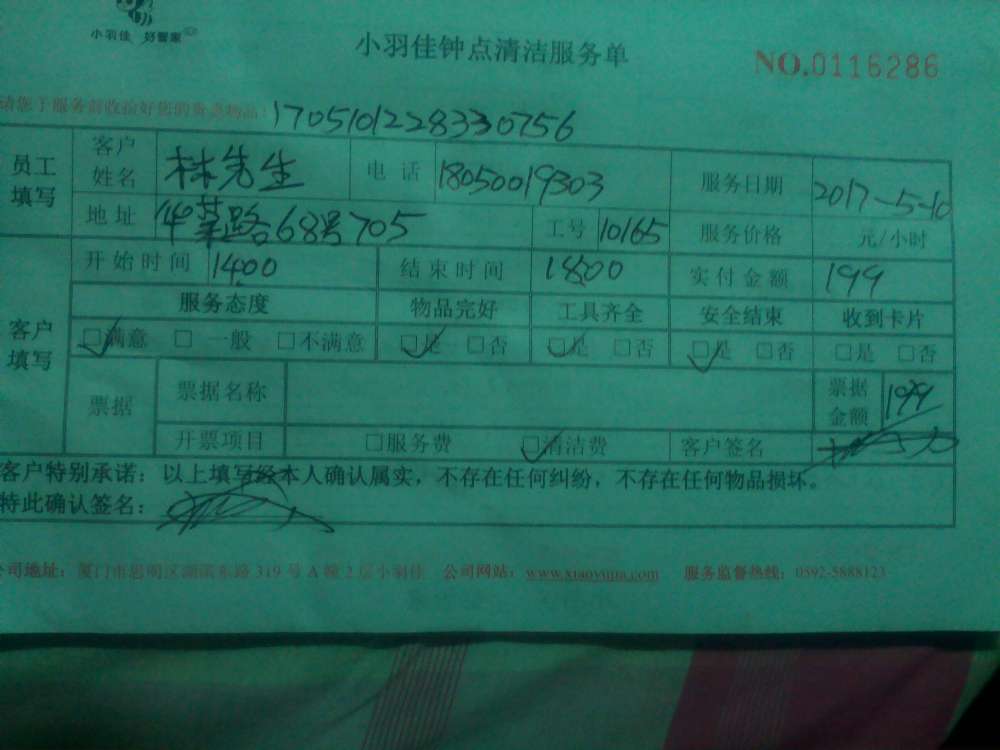 小羽佳 好管家
小羽佳钟点清洁服务单
NO.0116286
请您于服务前收拾好您的贵重物品:
170510122833 0756
员工填写 客户姓名 林先生 电话 18050019303 服务日期 2017-5-10
地址 华荣路68号705 工号 10165 服务价格 元/小时
客户填写 开始时间 1400 结束时间 1800 实付金额 199
服务态度 物品完好 工具齐全 安全结束 收到卡片
□满意 □一般 □不满意 □是 □否 □是 □否 □是 □否 □是 □否
票据 票据名称 票据金额 199
开票项目 □服务费 □清洁费 客户签名
客户特别承诺：以上填写经本人确认属实，不存在任何纠纷，不存在任何物品损坏。
特此确认签名：
公司地址：厦门市思明区湖滨东路319号A幢2层小羽佳 公司网站：www.xiaoyujia.com 服务监督热线：0592-5888123